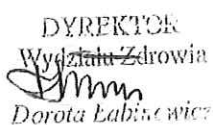 DYREKTOR
Wydziału Zdrowia
Dorota Łabinowicz